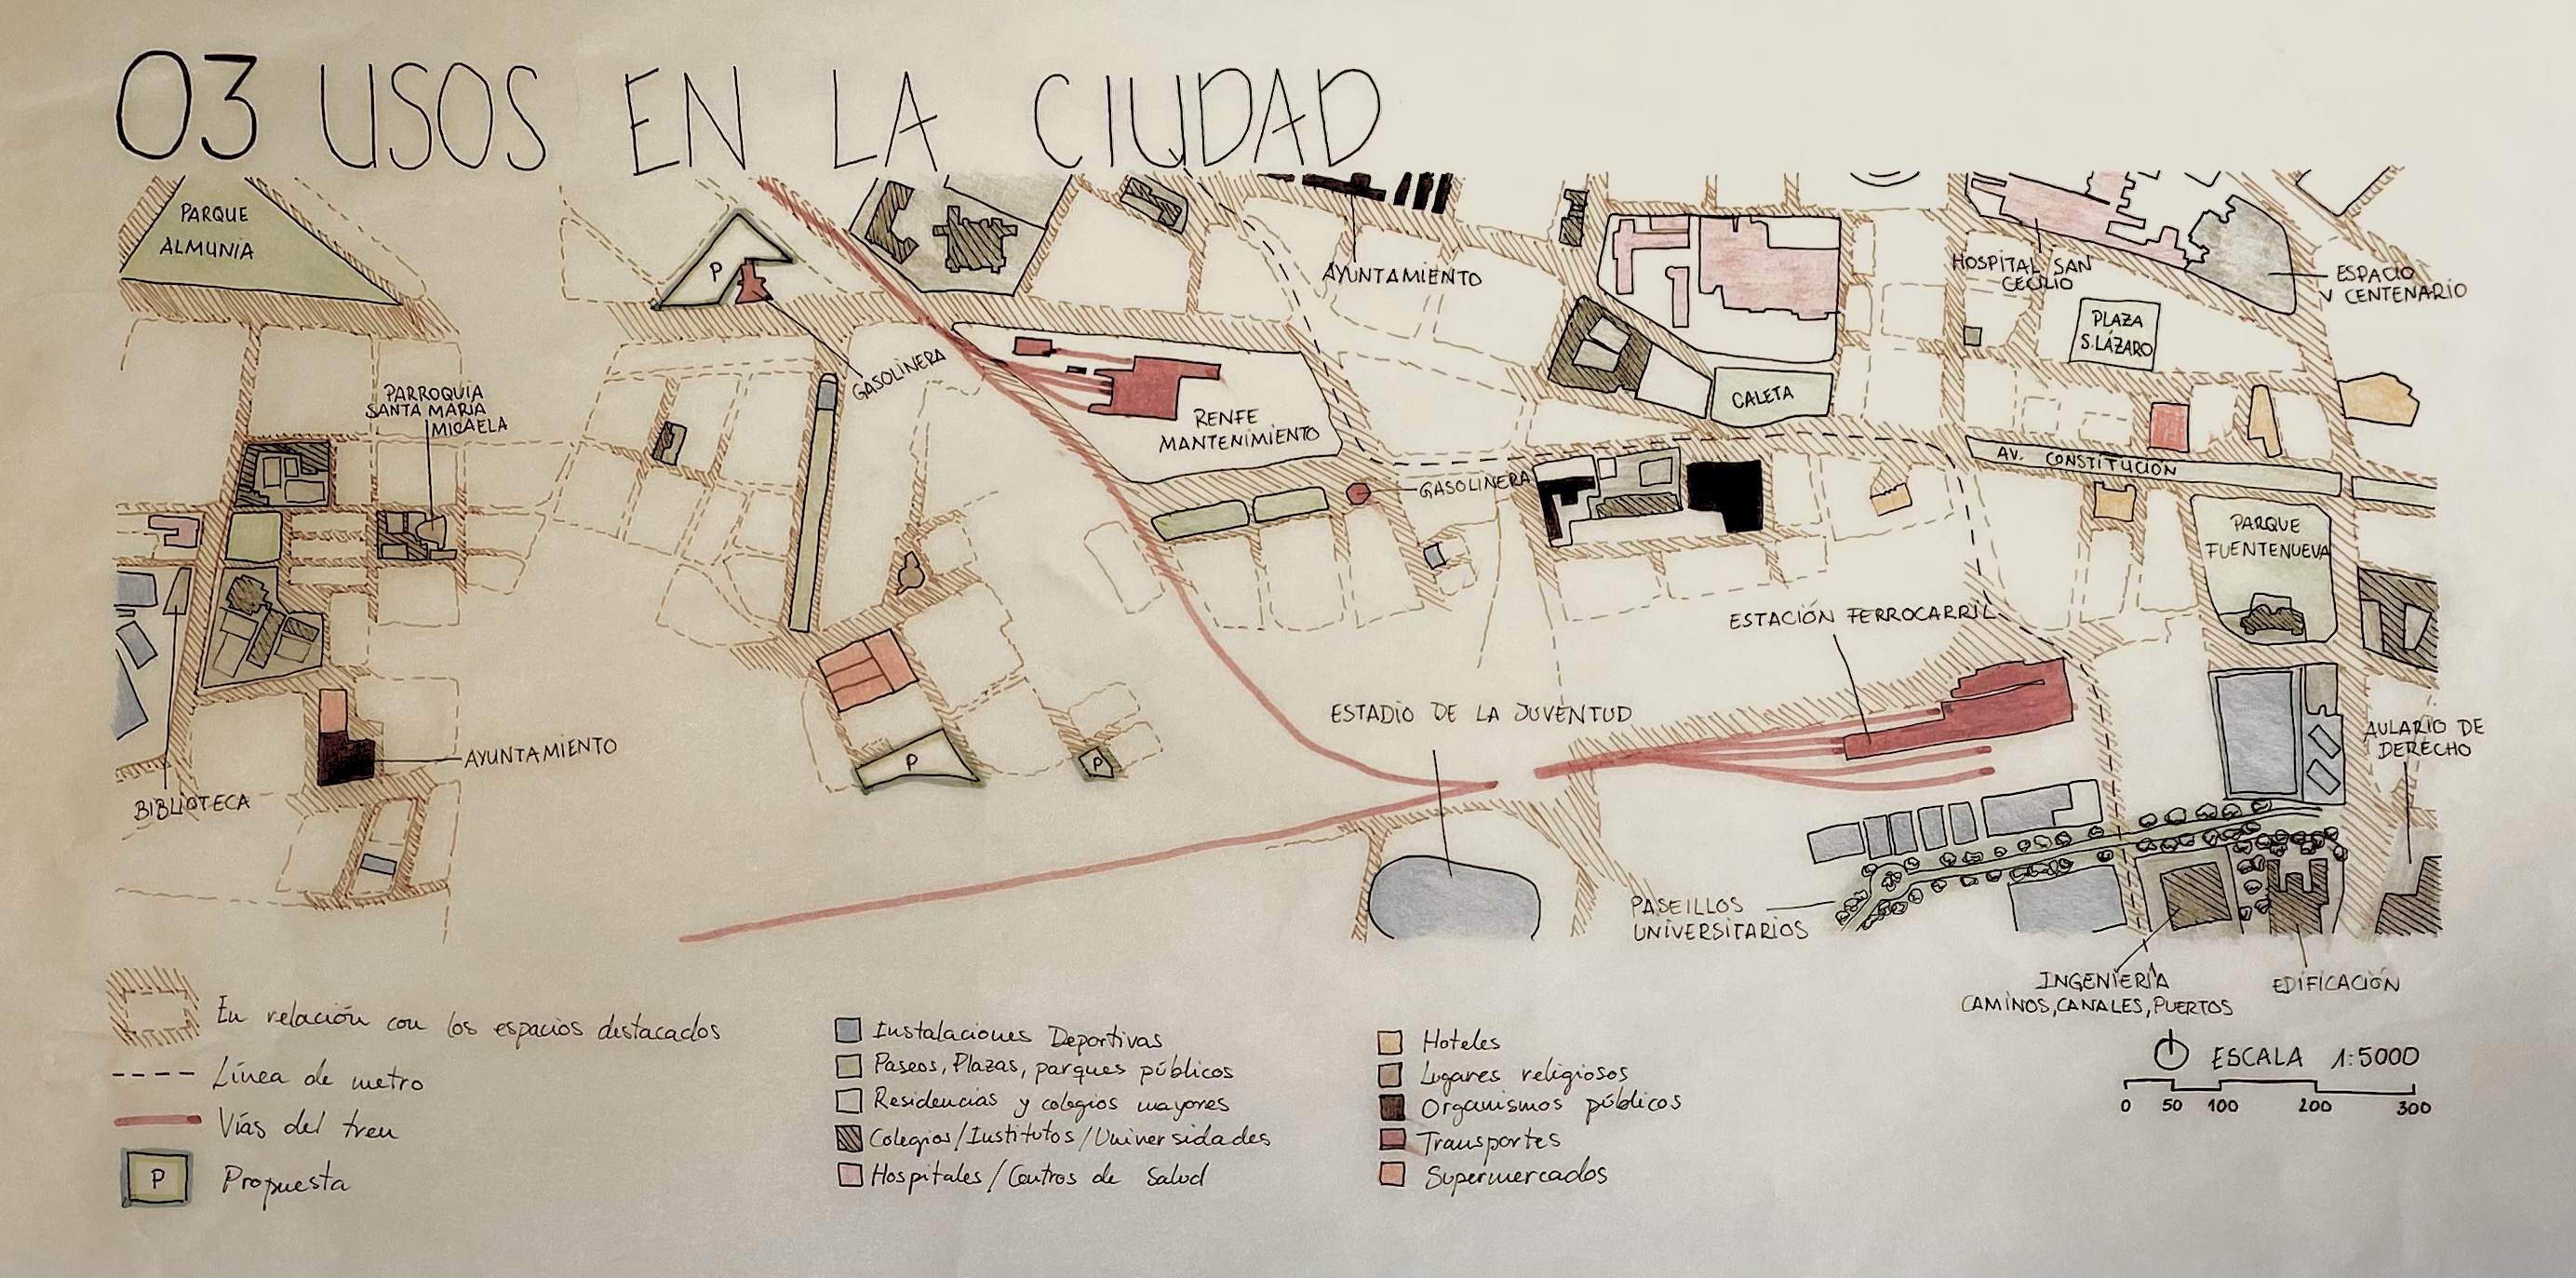 03 USOS EN LA CIUDAD
PARQUE
ALMUNIA
P
GASOLINERA
AYUNTAMIENTO
HOSPITAL SAN
CECILIO
ESPACIO
V CENTENARIO
PLAZA
S.LÁZARO
PARROQUIA
SANTA MARÍA
MICAELA
RENFE
MANTENIMIENTO
CALETA
AV. CONSTITUCIÓN
GASOLINERA
PARQUE
FUENTENUEVA
ESTACIÓN FERROCARRIL
ESTADIO DE LA JUVENTUD
AYUNTAMIENTO
P
P
BIBLIOTECA
AULARIO DE
DERECHO
PASEILLOS
UNIVERSITARIOS
INGENIERÍA
CAMINOS,CANALES,PUERTOS
EDIFICACIÓN
En relación con los espacios destacados
Línea de metro
Vías del tren
P Propuesta
Instalaciones Deportivas
Paseos, Plazas, parques públicos
Residencias y colegios mayores
Colegios/Institutos/Universidades
Hospitales/Centros de Salud
Hoteles
Lugares religiosos
Organismos públicos
Transportes
Supermercados
ESCALA 1:5000
0 50 100 200 300